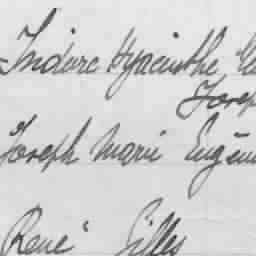 Isidore Hyacinthe
Joseph
Joseph Marie Eugène
René Gilles